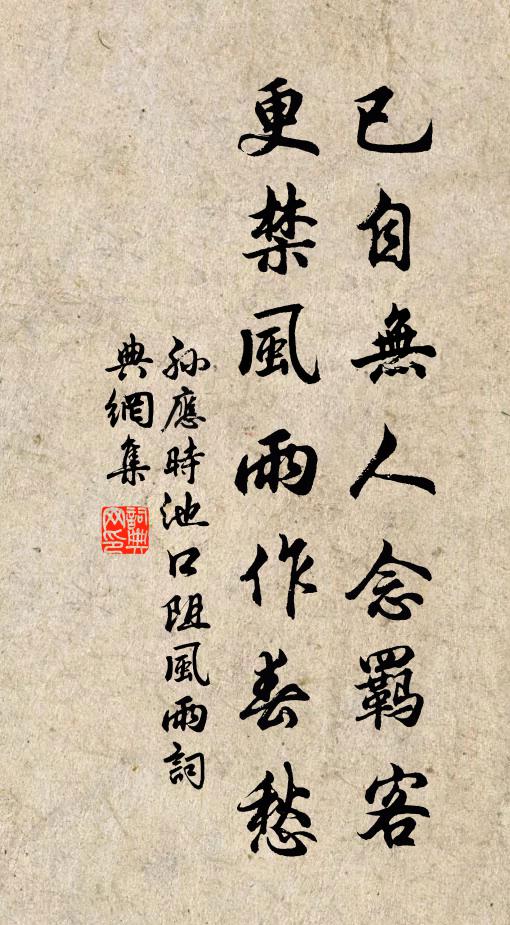 已自無人念羈客
更禁風雨作春愁
孫應時池口阻風雨詞
典網集
詞典網印